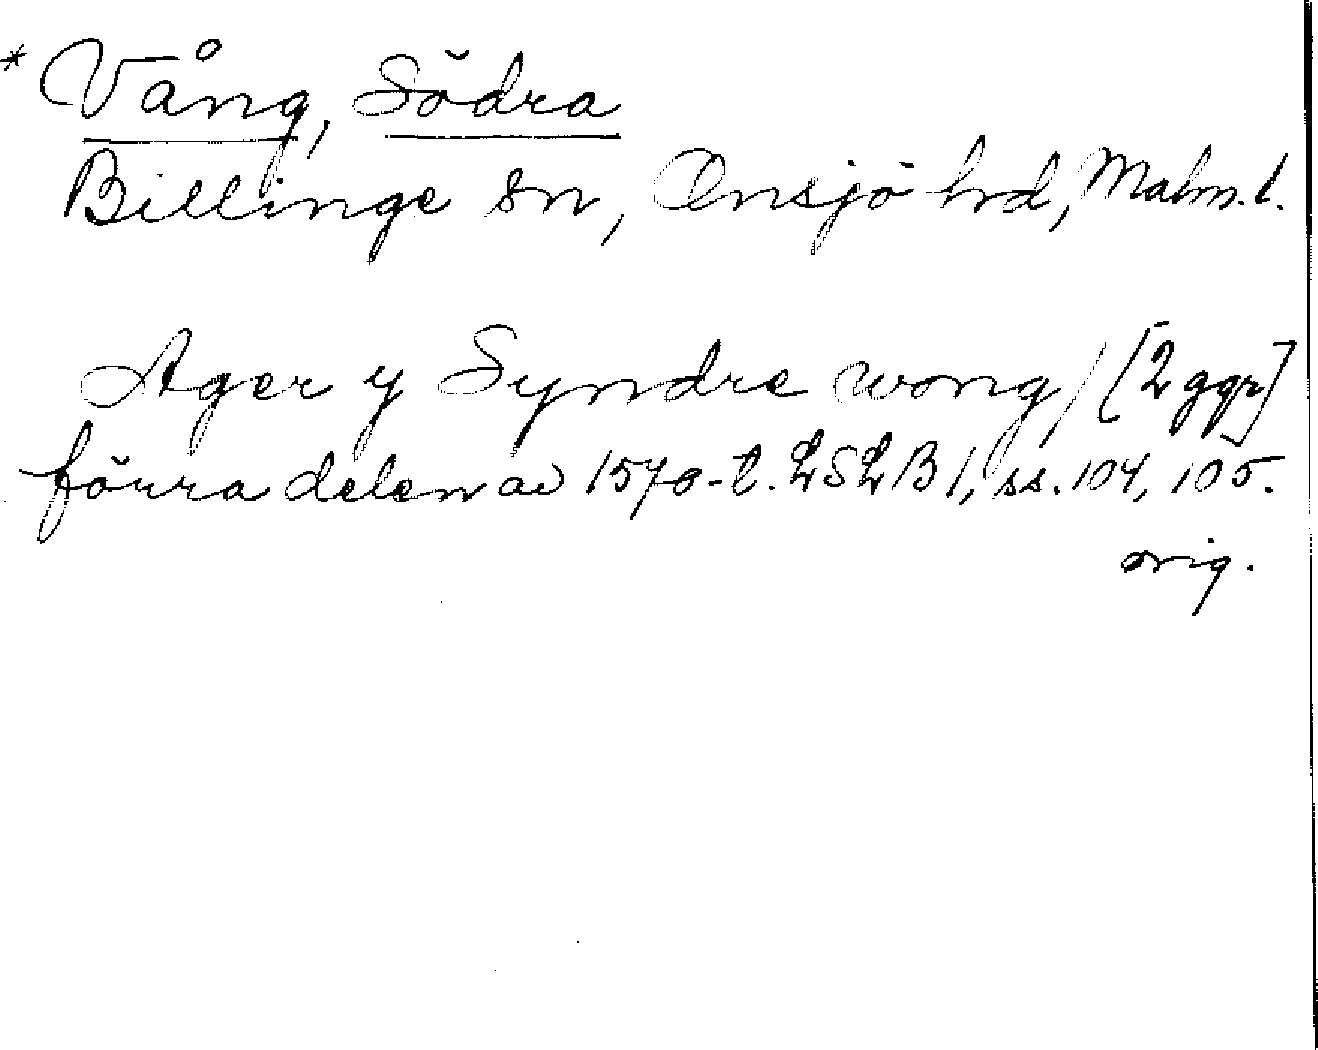 * Vång, Södra
Billinge sn, Onsjö hrd, Malm. l.
Ager y Syndre wong / [2 ggr]
förra delen av 1570-t. LSLB 1, ss. 104, 105.
orig.